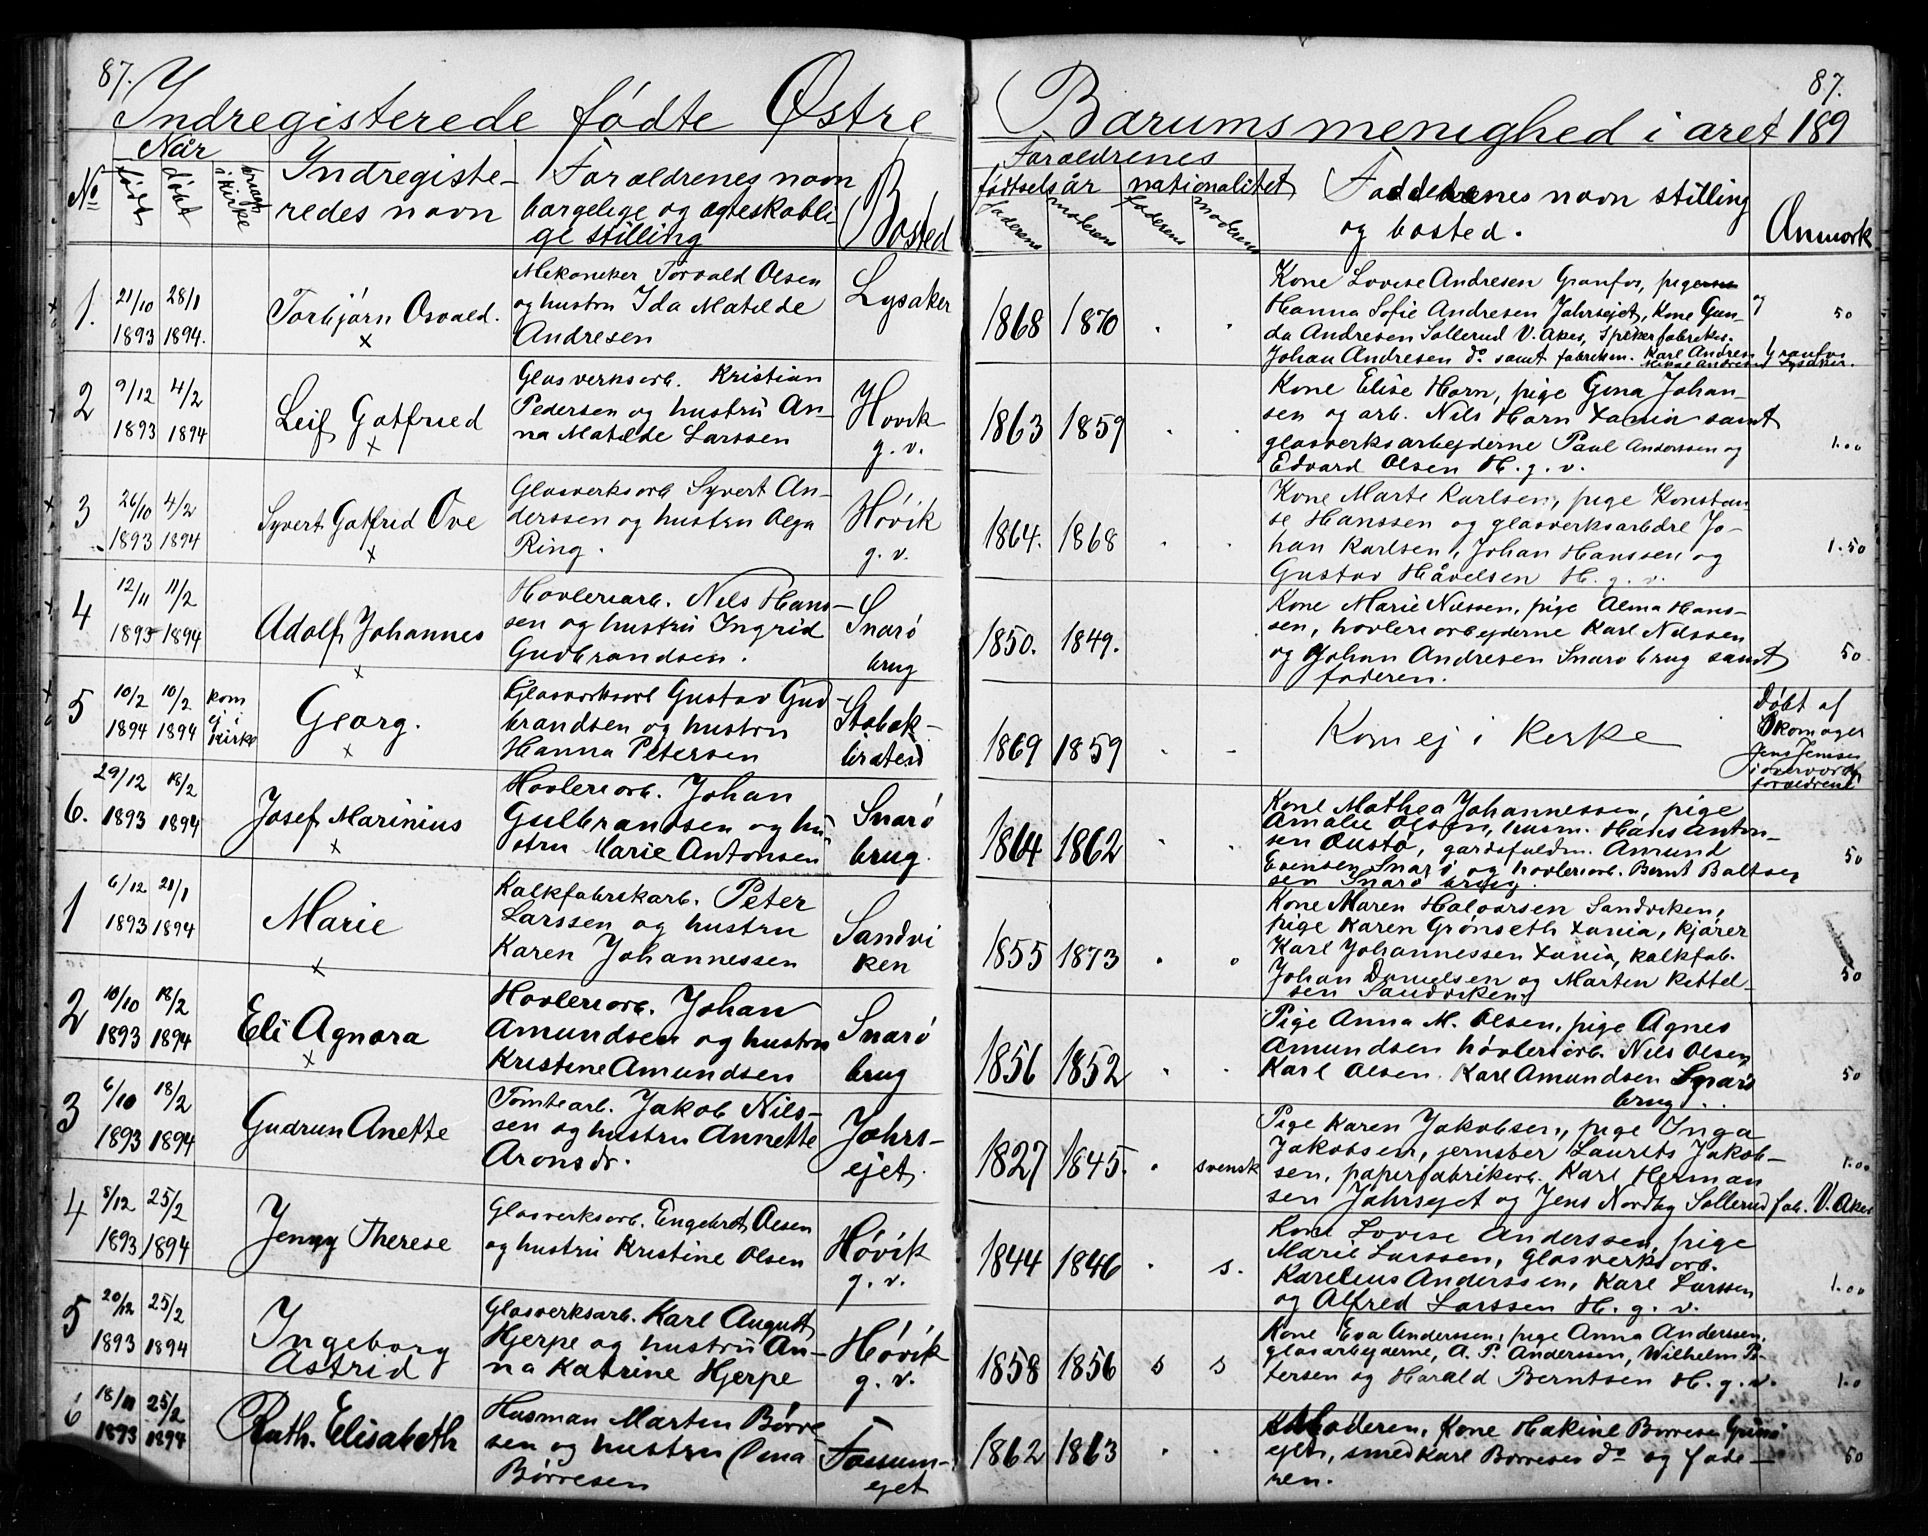 87.
Indregisterede fødte Østre
No
Når
født
døbt
i kirke
Indregiste-
redes navn
Forældrenes navn
borgelige og ægteskabli-
ge stilling
Bosted
1. 21/10 1893 28/1 1894.
Torbjørn Osvald.
x
Mekaneker Torvald Olsen
og hustru Ida Matilde
Andresen
Lysaker
2 9/12 1893 4/2 1894
Leif Gotfried
x
Glasverksarb. Kristian
Pedersen og hustru An-
na Matilde Larssen
Høvik
g. v.
3 26/10 1893 4/2 1894
Syvert Gotfrid Ove
x
Glasverksarb Syvert An-
derssen og hustru Olga
Ring.
Høvik
g. v.
4 12/11 1893 11/2 1894
Adolf Johannes
x
Høvleriarb. Nils Hans-
sen og hustru Ingrid
Gudbrandsen.
Snarø
brug
5 10/2 1894 10/2 1894
kom
ej i
kirke
Georg.
x
Glasverksarb Gustav Gud
brandsen og hustru
Hanna Petersen
Stabæk
6. 29/12 1893 18/2 1894
Josef Marinius
x
Høvleriarb. Johan
Gulbrandsen og hu
stru Marie Antonsen
Snarø
brug.
1 6/12 1893 21/1 1894
Marie
x
Kalkfabrikarb. Peter
Larssen og hustru
Karen Johannessen
Sandvi
ken
2 10/10 1893 18/2 1894
Eli Agnora
x
Høvleriarb. Johan
Amundsen og hustru
Kristine Amundsen
Snarø
brug
3 6/10 1893 18/2 1894
Gudrun Anette
Tomtearb. Jakob Nils-
sen og hustru Annette
Aronsdr.
Jahrs-
ejet.
4 5/12 1893 25/2 1894
Jenny Therese
Glasverksarb. Engebret Olsen
og hustru Kristine Olsen
Høvik
g. v.
5 20/12 1893 25/2 1894
Ingeborg
Astrid
Glasverksarb. Karl August
Hjerpe og hustru An-
na Katrine Hjerpe
Høvik
g. v.
6 18/11 1893 25/2 1894
Ruth. Elisabeth
Husman Martin Børre
sen og hustru
Børresen
Fossum-
ejet
87.
Bærums menighed i året 189
Forældrenes
fødtselsår
nationalitet
faderens
moderens
faderens
moderens
Faddernes navn stilling
og bosted.
Anmærk
1868 1870
Kone Lovise Andresen Granfos, pige
Hanna Sofie Andresen Jahrsejet, Kone Gun-
da Andresen Sollerud V. Aker, Spikerfabrikes.
Johan Andresen do samt fabrikm. Karl Andresen Granfos
Mikal Andresen Lysaker.
50
1863 1859
Kone Elise Horn, pige Gina Johan-
sen og arb. Nils Horn Xania samt
glasverksarbejderne Paul Anderssen og
Edvard Olsen H. g. v.
1.00
1864. 1868
Kone Marte Karlsen, pige Konstan-
se Hanssen og glasverksarbdre Jo-
han Karlsen, Johan Hanssen og
Gustav Håvelsen H. g. v.
1.50
1850. 1849.
Kone Marie Nilssen, pige Alma Hans-
sen, høvleriarbejderne Karl Nilssen
og Johan Andresen Snarø brug samt
faderen.
50
1869 1859
Kom ej i kirke
Døbt af
Skomager
Jens Jensen
i overvær af
forældrene
1864 1862
Kone Mathea Johannessen, pige
Amalie Olsen, husm. Hans Anton-
sen Oustø, gårdsfuldm. Amund
Evensen Snarø og høvleriarb. Bernt Baltser
sen Snarø brug.
50
1855 1873
Kone Maren Halvorsen Sandviken,
pige Karen Grønseth Xania, kjører
Karl Johannessen Xania, kalkfab.
Johan Danielsen og Martin Kittel-
sen Sandviken
50
1856 1852
Pige Anna M. Olsen, pige Agnes
Amundsen høvleriarb. Nils Olsen
Karl Olsen Karl Amundsen Snarø
brug
50
1827 1845. svensk
Pige Karen Jakobsen, pige Inga
Jakobsen, jernstøber Laurits Jakob-
sen, papirfabrikarb. Karl Herman
sen Jahrsejet og Jens Nordby Sollerud fab. V. Aker
1.00
1844 1846 s.
Kone Lovise Anderssen, pige
Marie Larssen, Glasverksarb.
Karelius Anderssen, Karl Larssen
og Alfred Larssen H. g. v.
1.00
1858 1856 s s
Kone Eva Anderssen, pige Anna Anderssen,
glasarbejderne, A. P. Anderssen, Wilhelm Pe-
tersen og Harald Berntsen H. g. v.
1.0
1862 1863
Moderen, Kone Hakine Børresen
ejet, smed Karl Børresen do og fade-
ren.
50